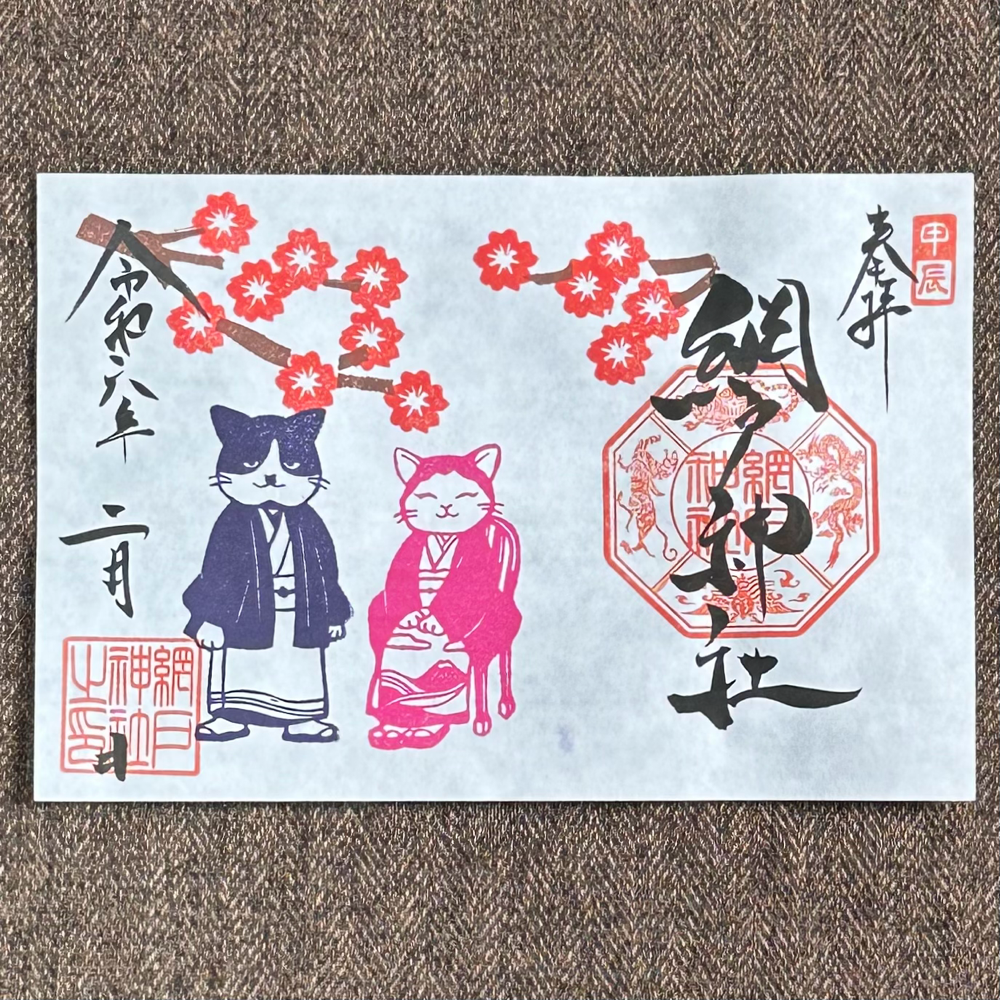 甲辰
奉拝
網戸神社
網戸
神社
令和六年 二月 日
網戸
神社
之印